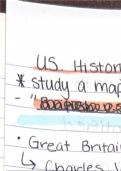 U.S. Histor
* study a map
- "
• Great Britai
↳ Charles